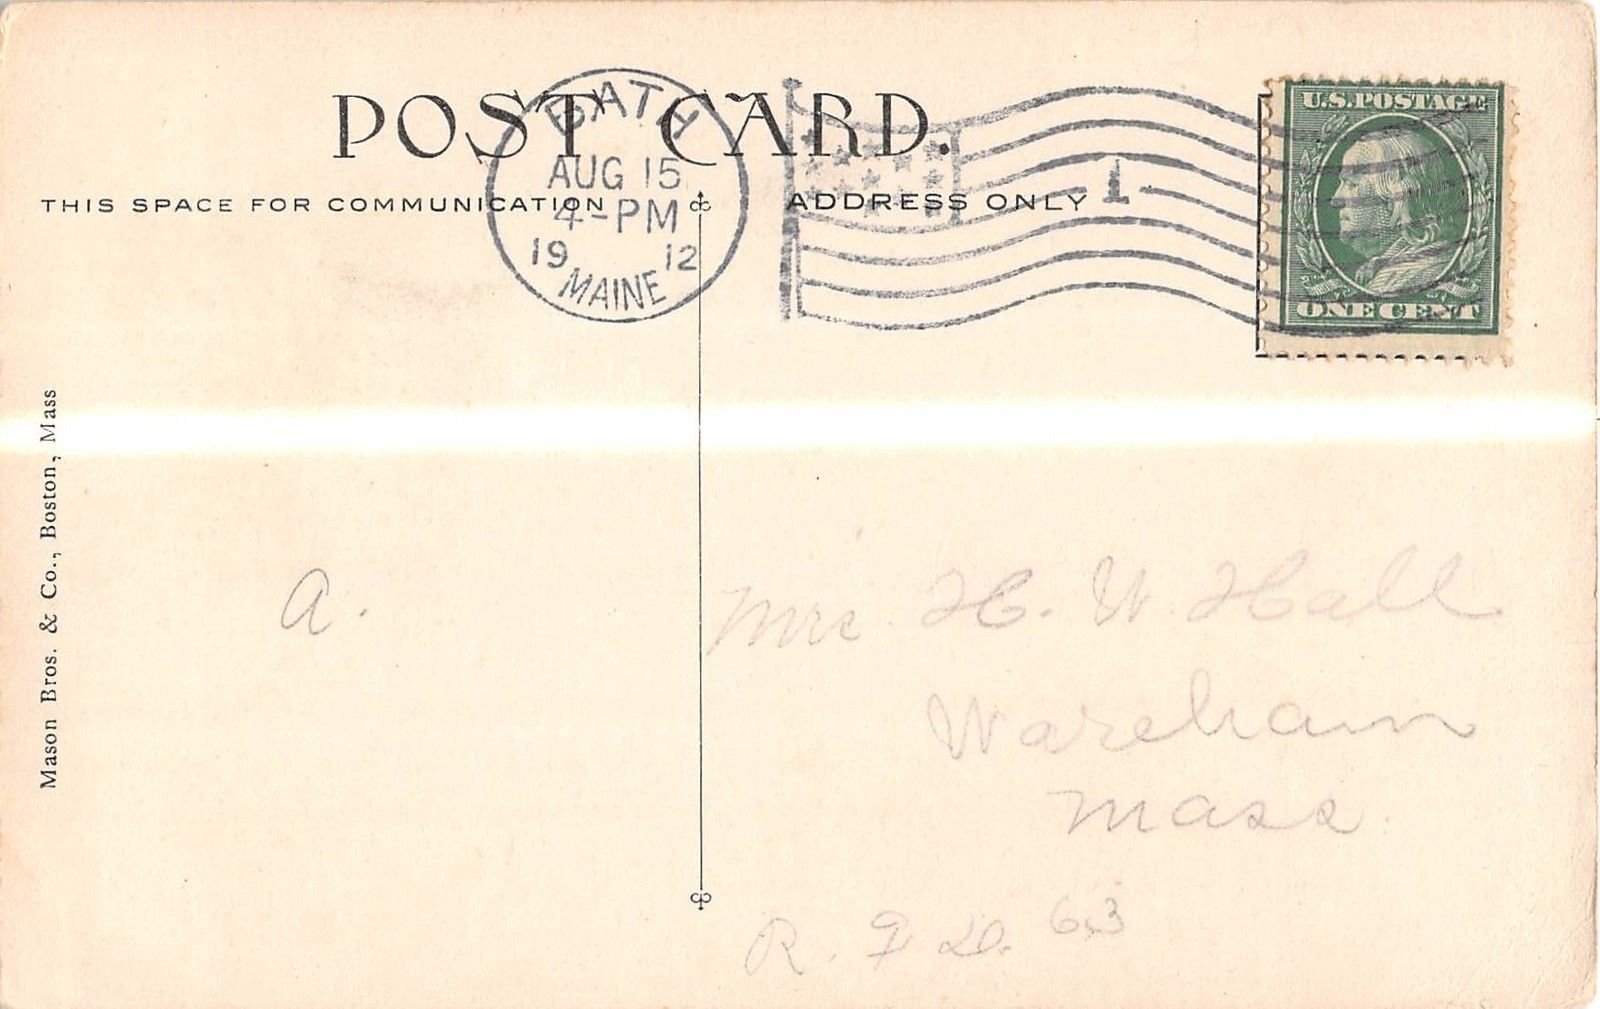 POST CARD.
THIS SPACE FOR COMMUNICATION
ADDRESS ONLY
BATH
AUG 15
4-PM
19 12
MAINE
1
U.S.POSTAGE
ONE CENT
Mason Bros. & Co., Boston, Mass
a.
Mrs. H. W. Hall
Wareham
Mass.
R. F. D. 63